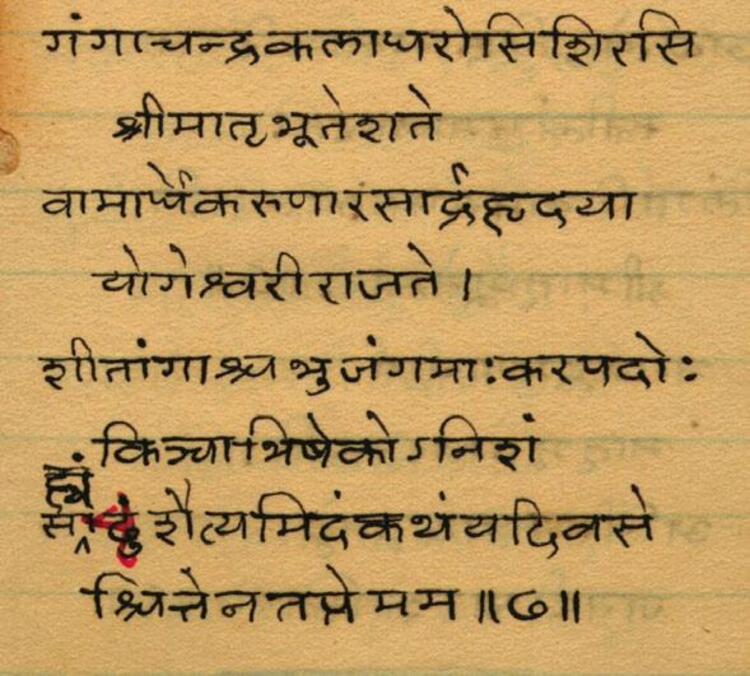 गंगाचन्द्रकलाधरोसिशिरसि
श्रीमातृभूतेशते
वामार्धेकरुणारसार्द्रहृदया
योगेश्वरीराजते।
शीतांगाश्चभुजंगमाःकरपदोः
किञ्चाभिषेकोऽनिशं
शैत्यमिदंकथंयदिवसे
श्चित्तेनतप्तेमम॥७॥